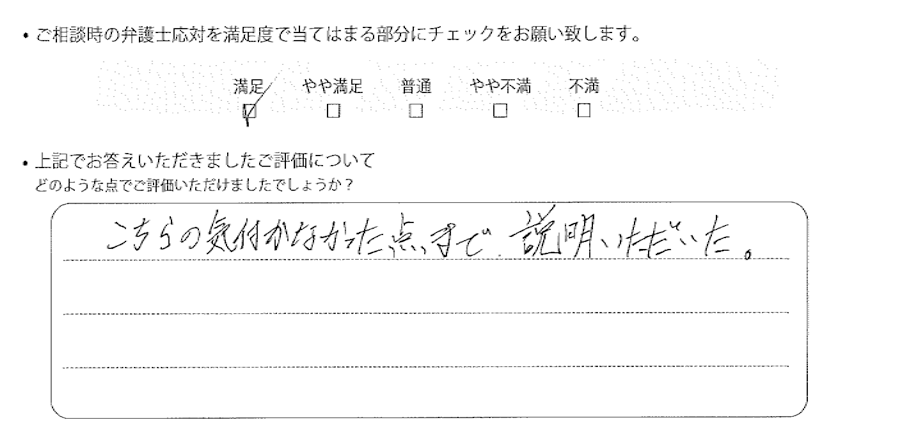 ・ご相談時の弁護士応対を満足度で当てはまる部分にチェックをお願い致します。
満足 やや満足 普通 やや不満 不満
・上記でお答えいただきましたご評価について
どのような点でご評価いただけましたでしょうか？
こちらの気付かなかった点まで説明いただいた。